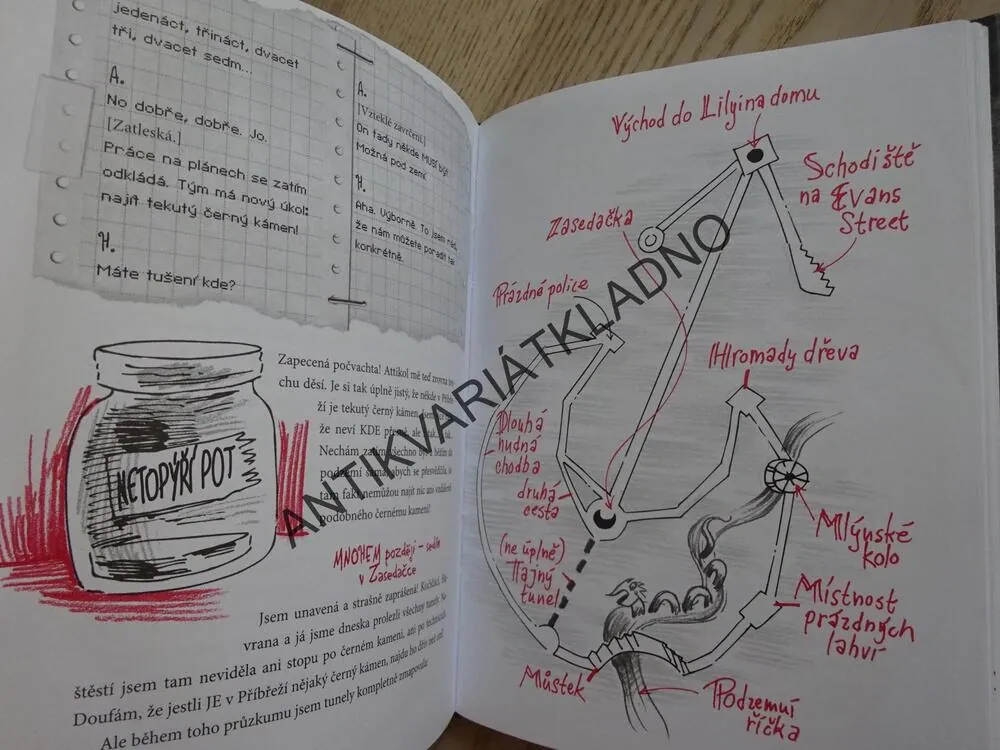 jedenáct, třináct, dvacet
tři, dvacet sedm...
A.
No dobře, dobře. Jo.
[Zatleská.]
Práce na plánech se zatím
odkládá. Tým má nový úkol:
najít tekutý černý kámen!
H.
Máte tušení kde?
A.
[Vzteklé zavrčení.]
On tady někde MUSÍ být!
Možná pod zemí.
H.
Aha. Výborně. To jsem rád,
že nám můžete poradit tak
konkrétně.
NETOPÝŘÍ POT
Zapecená počvachta! Attikol mě teď
chu děsí. Je si tak úplně jistý, že někde v
ží je tekutý černý kámen,
že neví KDE
Nechám
podzemí abych se přesvědčila,
tam fakt nemůžou najít nic ani vzdáleně
podobného černému kameni!
MNOHEM později – sedím
v Zasedačce
Jsem unavená a strašně zaprášená!
vrana a já jsme dneska prolezli všechny tunely. Na
štěstí jsem tam neviděla ani stopu po černém kameni, ani po
Doufám, že jestli JE v Příbřeží nějaký černý kámen, najdu ho dřív než oni!
Ale během toho průzkumu jsem tunely kompletně zmapovala:
Východ do Lilyina domu
Schodiště
na Evans
Street
Zasedačka
Prázdné police
Hromady dřeva
Dlouhá
nudná
chodba
druhá
cesta
(ne úplně)
Tajný
tunel
Mlýnské
kolo
Místnost
prázdných
lahví
Můstek
Podzemní
říčka
ANTIKVARIÁTKLADNO